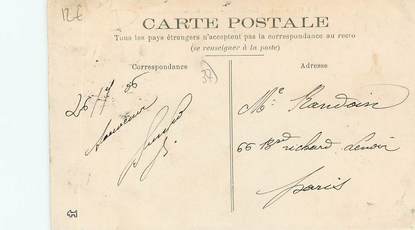 12€
CARTE POSTALE
Tous les pays étrangers n'acceptent pas la correspondance au recto
(se renseigner à la poste)
Correspondance
37
Adresse
Souvenir
Me Randoin
66 Bd richard Lenoir
paris